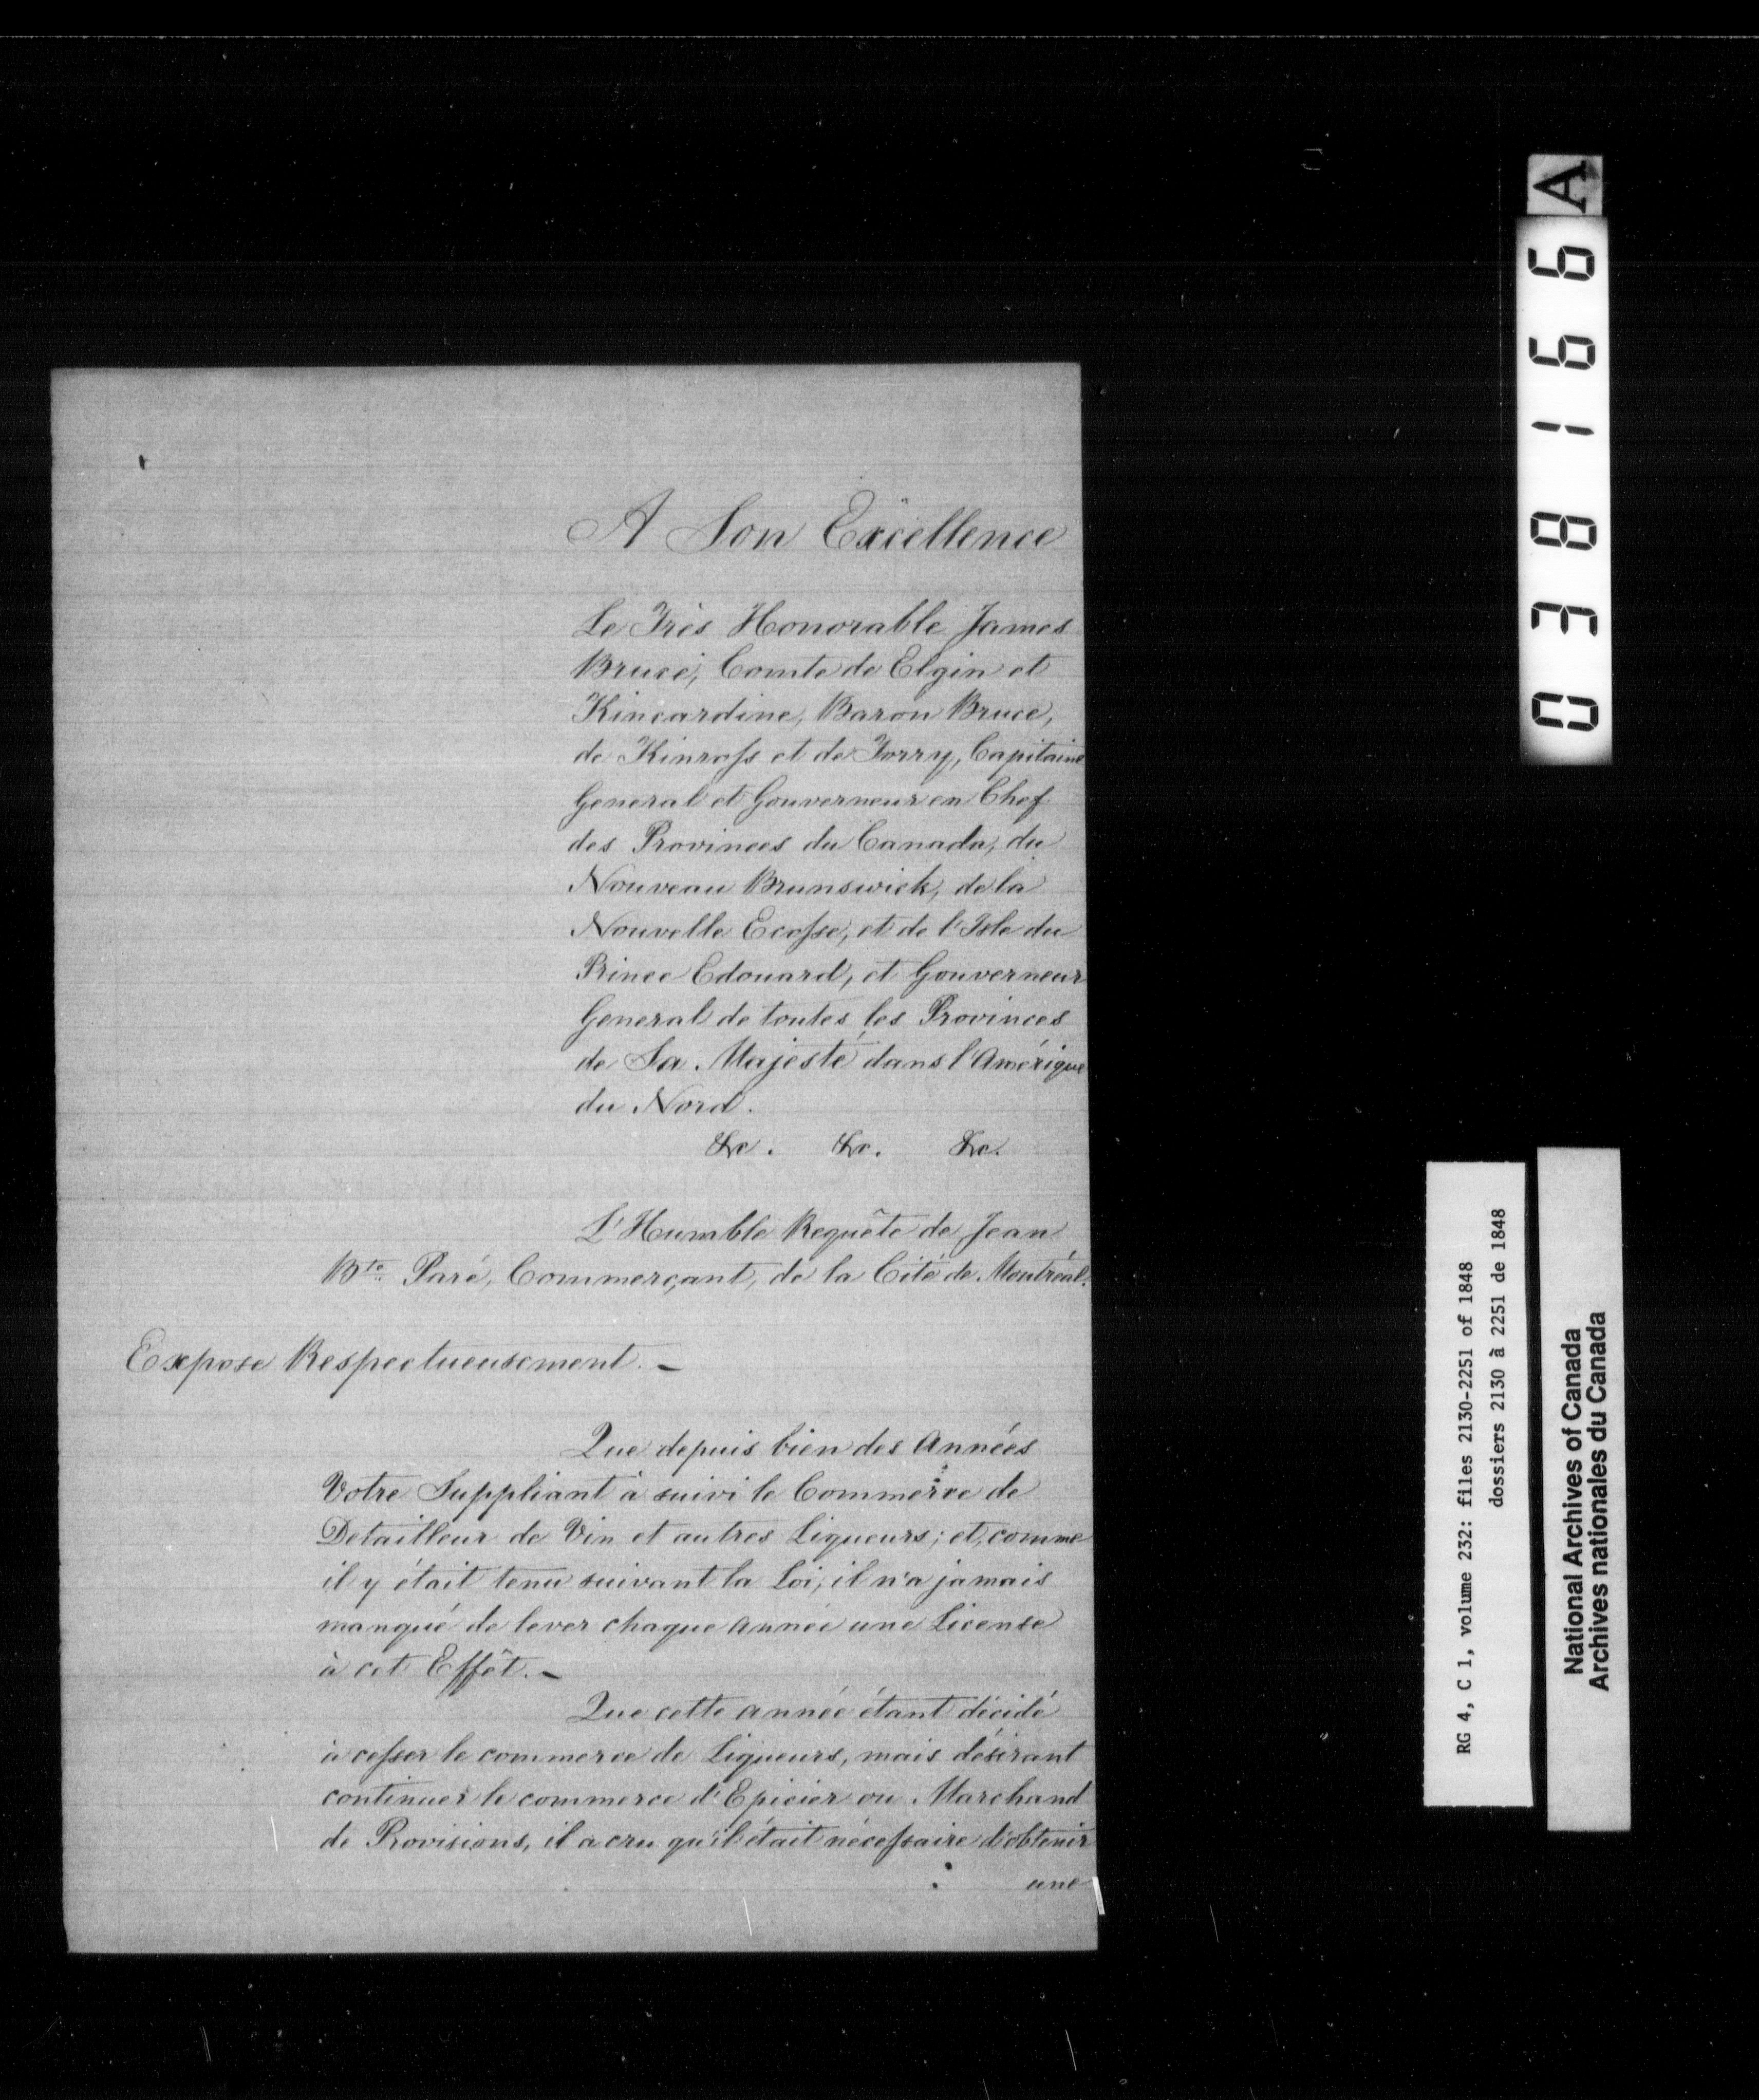 A Son Excellence
Le Très Honorable James
Bruce, Comte de Elgin et
Kincardine, Baron Bruce,
de Kinross et de Torry, Capitaine
General et Gouverneur en Chef
des Provinces du Canada, du
Nouveau Brunswick, de la
Nouvelle Ecosse, et de l'Isle du
Prince Edouard, et Gouverneur
General de toutes les Provinces
de Sa Majesté dans l'Amérique
du Nord.
&c. &c. &c.
L'Humble Requête de Jean
Bte. Paré, Commerçant, de la Cité de Montréal.
Expose Respectueusement. –
Que depuis bien des Années
Votre Suppliant à suivi le Commerce de
Detailleur de Vin et autres Liqueurs; et, comme
il y était tenu suivant la Loi, il n'a jamais
manqué de lever chaque Année une License
à cet Effêt. –
Que cette Année étant décidé
à cesser le commerce de Liqueurs, mais désirant
continuer le commerce d'Epicier ou Marchand
de Provisions, il a cru qu'il était nécessaire d'obtenir
une
038166 A
RG 4, C 1, volume 232: files 2130-2251 of 1848
dossiers 2130 à 2251 de 1848
National Archives of Canada
Archives nationales du Canada